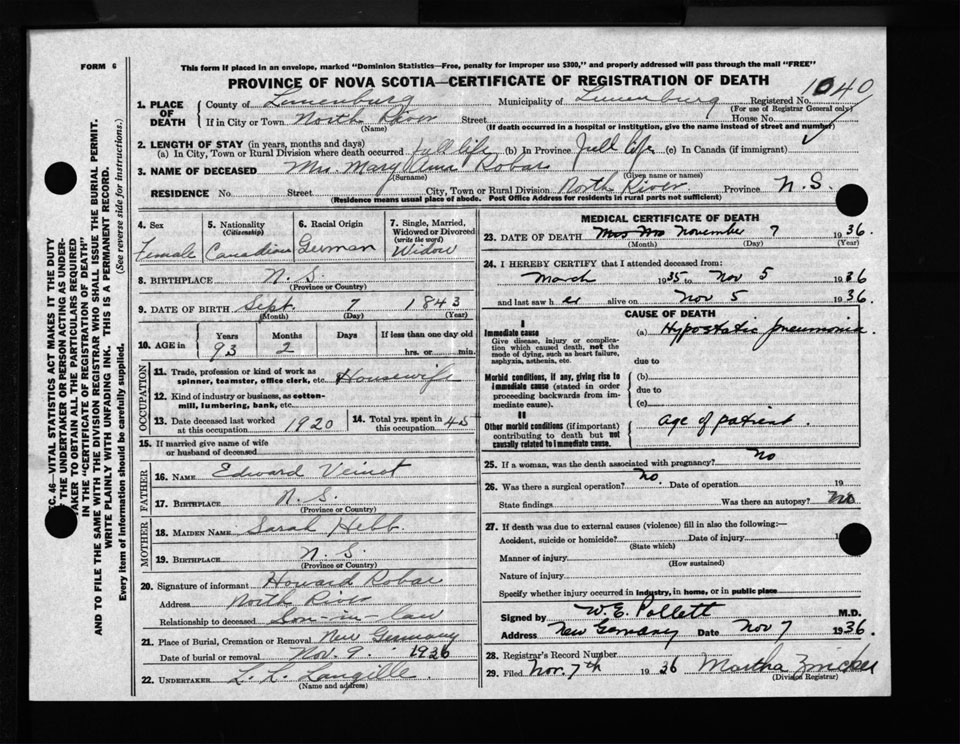 FORM 6
This form if placed in an envelope, marked "Dominion Statistics—Free, penalty for improper use $300," and properly addressed will pass through the mail "FREE"
PROVINCE OF NOVA SCOTIA—CERTIFICATE OF REGISTRATION OF DEATH
1040
1. PLACE OF DEATH
County of Lunenburg Municipality of Lunenburg Registered No.
(For use of Registrar General only)
If in City or Town North River Street House No.
(Name) (If death occurred in a hospital or institution, give the name instead of street and number)
2. LENGTH OF STAY (in years, months and days)
(a) In City, Town or Rural Division where death occurred full life (b) In Province Full life (c) In Canada (if immigrant)
3. NAME OF DECEASED Mrs. Mary Robar
(Surname) (Given name or names)
RESIDENCE No. Street City, Town or Rural Division North River Province N.S.
(Residence means usual place of abode. Post Office Address for residents in rural parts not sufficient)
4. Sex
Female
5. Nationality
(Citizenship)
Canadian
6. Racial Origin
German
7. Single, Married, Widowed or Divorced
(write the word)
Widow
8. BIRTHPLACE N.S.
(Province or Country)
9. DATE OF BIRTH Sept. 7 1843
(Month) (Day) (Year)
10. AGE in
Years Months Days If less than one day old
93 2 hrs. or min.
OCCUPATION
11. Trade, profession or kind of work as
spinner, teamster, office clerk, etc. Housewife
12. Kind of industry or business, as cotton-
mill, lumbering, bank, etc.
13. Date deceased last worked
at this occupation 1920
14. Total yrs. spent in
this occupation 45
15. If married give name of wife
or husband of deceased
FATHER
16. NAME Edward Veinot
17. BIRTHPLACE N.S.
(Province or Country)
MOTHER
18. MAIDEN NAME Sarah Hebb.
19. BIRTHPLACE N.S.
(Province or Country)
20. Signature of informant Howard Robar
Address North River
Relationship to deceased Son-in-Law
21. Place of Burial, Cremation or Removal New Germany
Date of burial or removal Nov. 9. 1936
22. UNDERTAKER L. L. Langille
(Name and address)
MEDICAL CERTIFICATE OF DEATH
23. DATE OF DEATH November 7 1936.
(Month) (Day) (Year)
24. I HEREBY CERTIFY that I attended deceased from:
March 1935 to Nov 5 1936
and last saw her alive on Nov 5 1936.
CAUSE OF DEATH
I
Immediate cause
Give disease, injury or complica-
tion which caused death, not the
mode of dying, such as heart failure,
asphyxia, asthenia, etc.
(a) Hypostatic pneumonia.
due to
Morbid conditions, if any, giving rise to
immediate cause (stated in order
proceeding backwards from im-
mediate cause).
(b)
due to
(c)
II
Other morbid conditions (if important)
contributing to death but not
causally related to immediate cause.
Age of patient.
25. If a woman, was the death associated with pregnancy? no
26. Was there a surgical operation? no. Date of operation 19
State findings Was there an autopsy? no
27. If death was due to external causes (violence) fill in also the following:—
Accident, suicide or homicide? Date of injury 1
(State which)
Manner of injury
(How sustained)
Nature of injury
Specify whether injury occurred in industry, in home, or in public place
Signed by W. E. Pollett M.D.
Address New Germany Date Nov 7 1936.
28. Registrar's Record Number
29. Filed Nov. 7th 1936 Martha Zwicker
(Division Registrar)
EC. 46—VITAL STATISTICS ACT MAKES IT THE DUTY
OF THE UNDERTAKER OR PERSON ACTING AS UNDER-
TAKER TO OBTAIN ALL THE PARTICULARS REQUIRED
IN THE "CERTIFICATE OF REGISTRATION OF DEATH"
AND TO FILE THE SAME WITH THE DIVISION REGISTRAR WHO SHALL ISSUE THE BURIAL PERMIT.
WRITE PLAINLY WITH UNFADING INK. THIS IS A PERMANENT RECORD.
Every item of information should be carefully supplied. (See reverse side for instructions.)